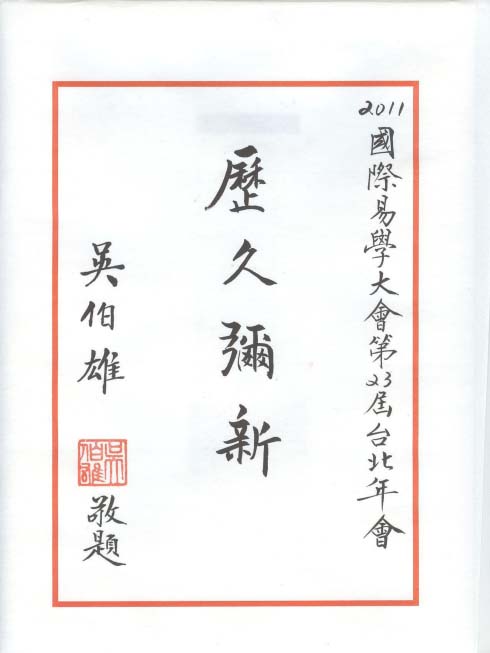 2011國際易學大會第23屆台北年會
歷久彌新
吳伯雄
吳伯雄
敬題